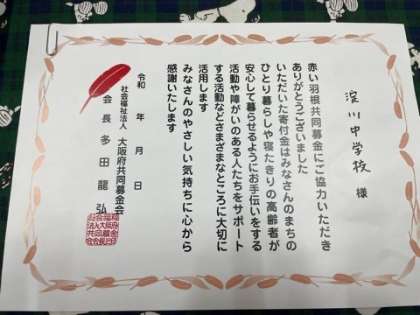 淀川中学校 様
赤い羽根共同募金にご協力いただき
ありがとうございました
いただいた寄付金はみなさんのまちの
ひとり暮らしや寝たきりの高齢者が
安心して暮らせるようにお手伝いをする
活動や障がいのある人たちをサポート
する活動などさまざまなところに大切に
活用します
みなさんのやさしい気持ちに心から
感謝いたします
令和 年 月 日
社会福祉法人 大阪府共同募金会
会長 多田龍弘